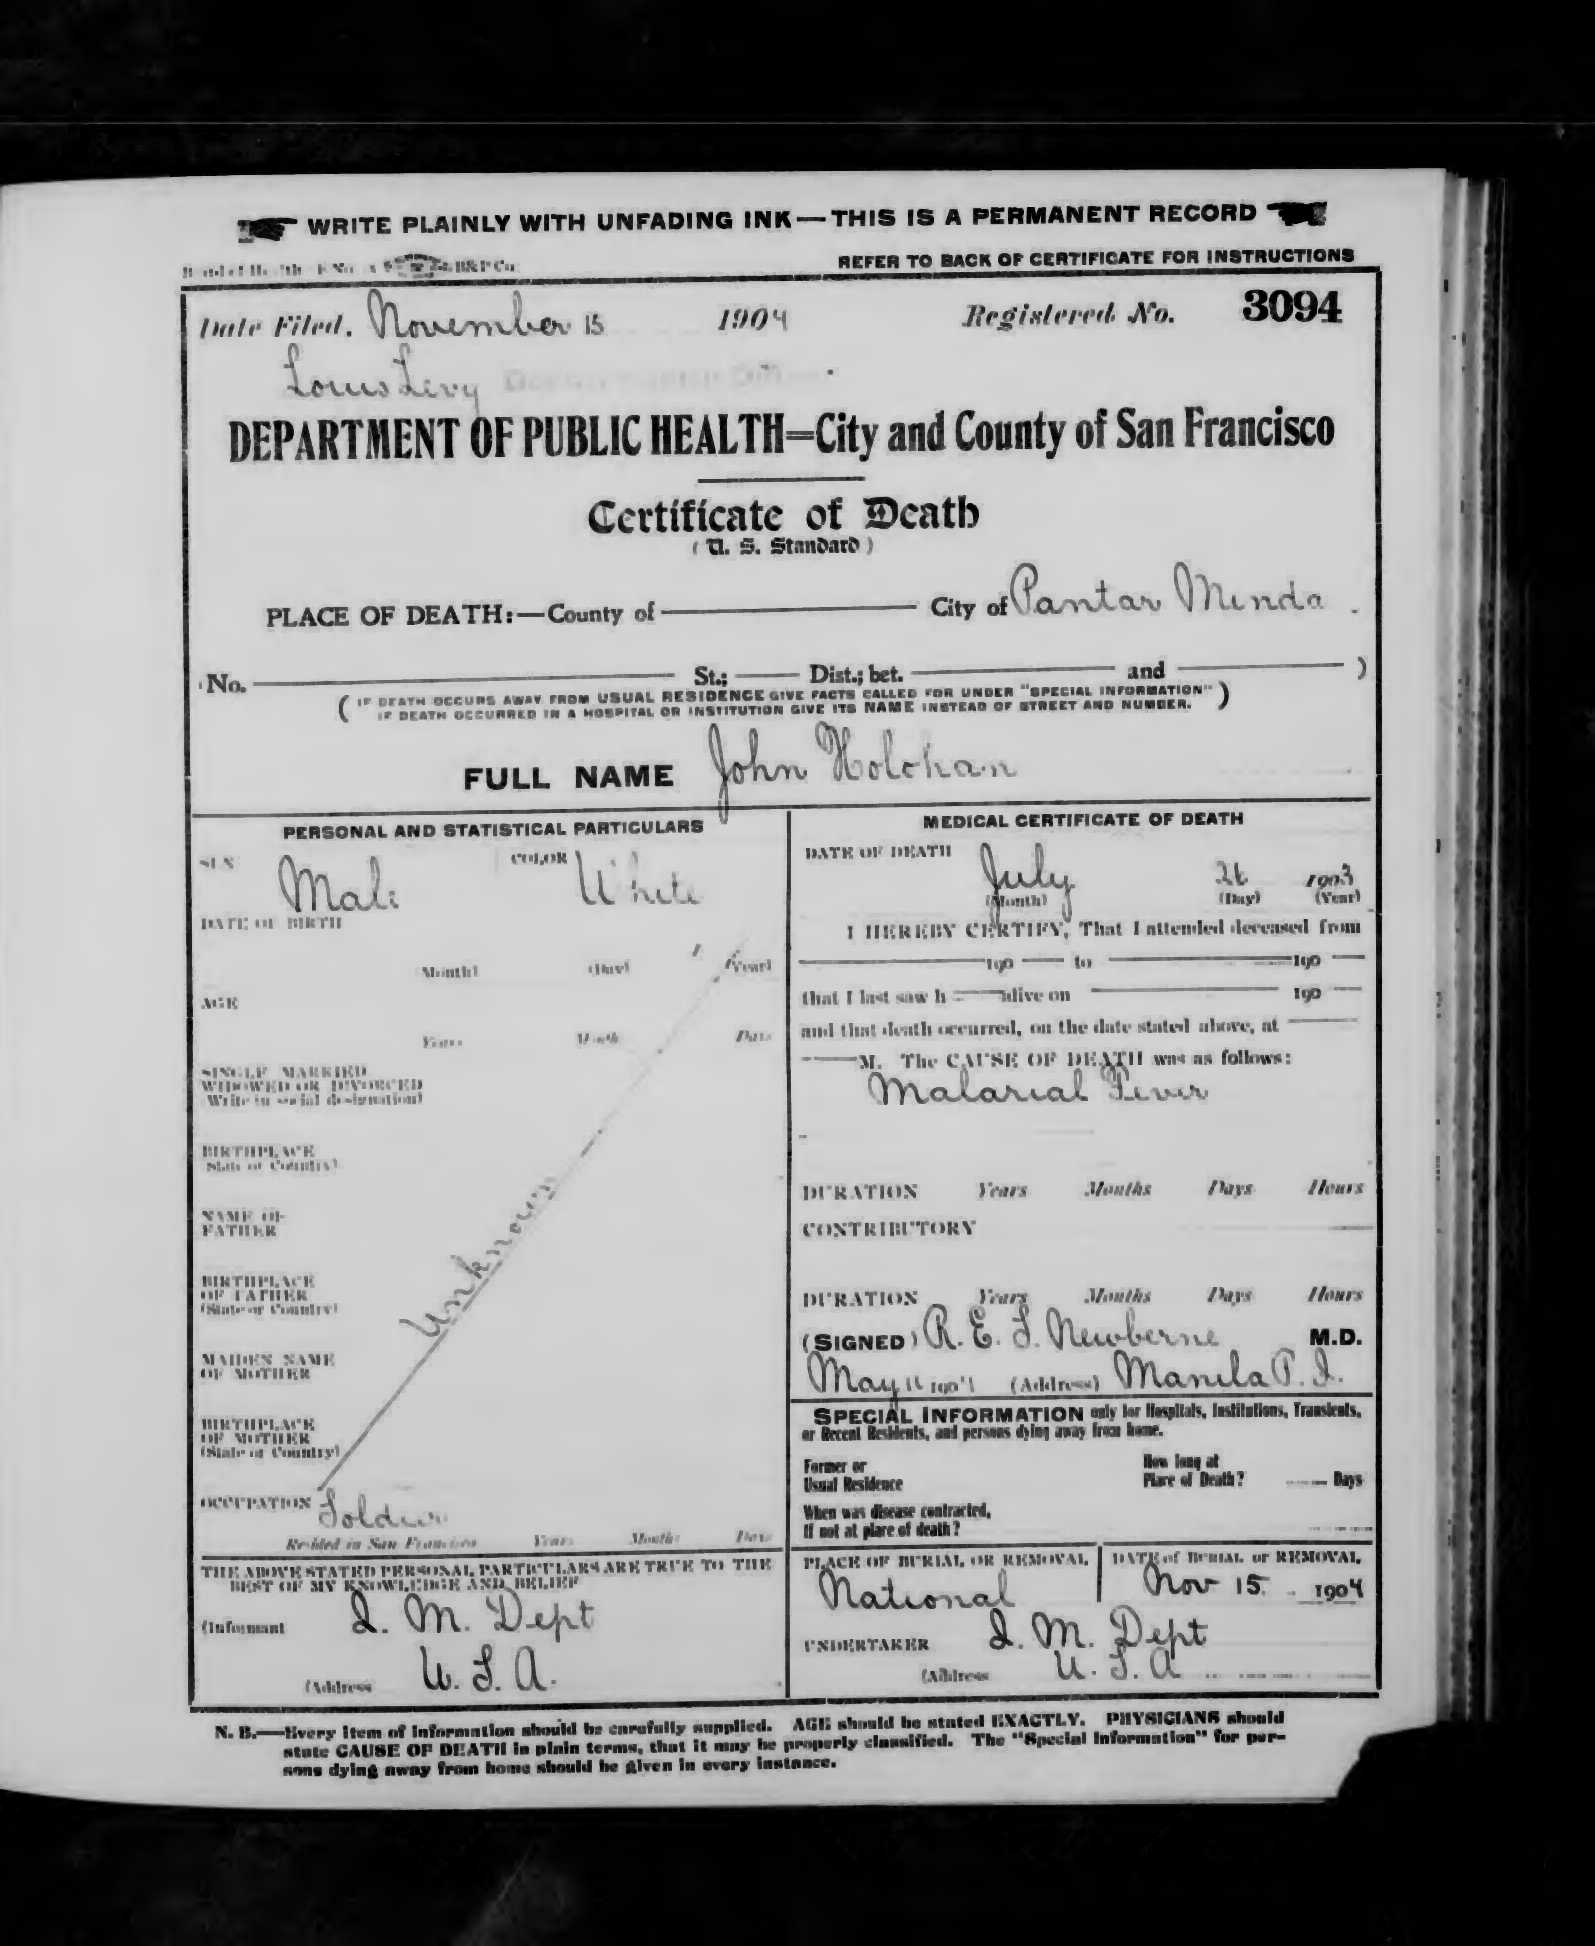 WRITE PLAINLY WITH UNFADING INK—THIS IS A PERMANENT RECORD
B&P Co.
REFER TO BACK OF CERTIFICATE FOR INSTRUCTIONS
Date Filed, November 15 1904 Registered No. 3094
Louis Levy
DEPARTMENT OF PUBLIC HEALTH=City and County of San Francisco
Certificate of Death
(U. S. Standard)
PLACE OF DEATH:—County of City of Pantar Minda
No. St.; Dist.; bet. and )
( IF DEATH OCCURS AWAY FROM USUAL RESIDENCE GIVE FACTS CALLED FOR UNDER "SPECIAL INFORMATION" )
IF DEATH OCCURRED IN A HOSPITAL OR INSTITUTION GIVE ITS NAME INSTEAD OF STREET AND NUMBER.
FULL NAME John Holohan
PERSONAL AND STATISTICAL PARTICULARS
SEX Male COLOR White
DATE OF BIRTH
(Month) (Day) (Year)
AGE
Years Months Days
SINGLE MARRIED
WIDOWED OR DIVORCED
(Write in social designation)
BIRTHPLACE
(State or Country)
NAME OF
FATHER
BIRTHPLACE
OF FATHER
(State or Country)
Unknown
MAIDEN NAME
OF MOTHER
BIRTHPLACE
OF MOTHER
(State or Country)
OCCUPATION Soldier
Resided in San Francisco Years Months Days
THE ABOVE STATED PERSONAL PARTICULARS ARE TRUE TO THE
BEST OF MY KNOWLEDGE AND BELIEF
(Informant Q. M. Dept
(Address U. S. A.
MEDICAL CERTIFICATE OF DEATH
DATE OF DEATH July 26 1903
(Month) (Day) (Year)
I HEREBY CERTIFY, That I attended deceased from
190 to 190
that I last saw h alive on 190
and that death occurred, on the date stated above, at
M. The CAUSE OF DEATH was as follows:
Malarial Fever
DURATION Years Months Days Hours
CONTRIBUTORY
DURATION Years Months Days Hours
(SIGNED) R. E. L. Newberne M.D.
May 11 1904 (Address) Manila P. I.
SPECIAL INFORMATION only for Hospitals, Institutions, Transients,
or Recent Residents, and persons dying away from home.
Former or
Usual Residence
How long at
Place of Death? Days
When was disease contracted,
If not at place of death?
PLACE OF BURIAL OR REMOVAL DATE of BURIAL or REMOVAL
National Nov 15. 1904
UNDERTAKER Q. M. Dept
(Address U. S. A
N. B.—Every item of information should be carefully supplied. AGE should be stated EXACTLY. PHYSICIANS should
state CAUSE OF DEATH in plain terms, that it may be properly classified. The "Special Information" for per-
sons dying away from home should be given in every instance.